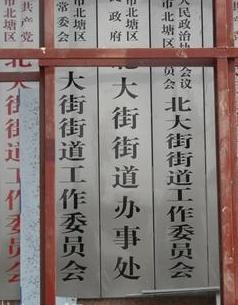 人民政治协
会议
市北塘区
员会
北大街街道工作委员会
市北塘区
民政府
北大街街道办事处
市北塘区
常委会
大街街道工作委员会
共产党
市北塘区
北大街街道工作委员会